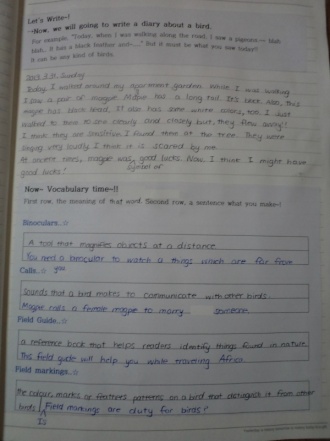 Let's Write~!
~Now, we will going to write a diary about a bird.
For example, "Today, when I was walking along the road, I saw a pigeons~ blah
blah. It has a black feather and~..." But it must be what you saw today!!
It can be any kind of birds.
Sunday
Today, I walked around my apartment garden. While I was walking
I saw a pair of magpie. Magpie has a long tail. It's sleek. Also, this
magpie has black head. It also has some white colors, too. I just
walked to them to see clearly and closely but, they flew away!!
I think they are sensitive. I found them at the tree. They were
crying very loudly. I think it is scared by me.
At ancient times, magpie was symbol of good lucks. Now I think I might have
good lucks!
Now~ Vocabulary time~!!
First row, the meaning of that word. Second row, a sentence what you make~!
Binoculars..☆
A tool that magnifies objects at a distance.
You need a binocular to watch a things which are far from
you
Calls..☆
Sounds that a bird makes to communicate with other birds
Magpie calls a female magpie to marry
Field Guide..☆
a reference book that helps readers identify things found in nature.
This field guide will help you while traveling Africa.
Field markings..☆
the colour, marks or features patterns on a bird that distinguish it from other
birds
Field markings are duty for birds!